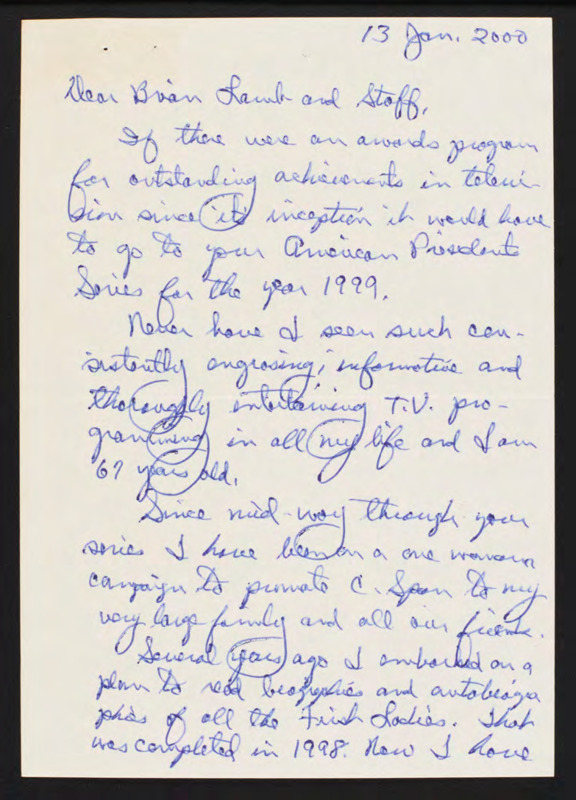 13 Jan. 2000
Dear Brian Lamb and Staff,
If there were an awards program
for outstanding achievements in televi-
sion since it's inception it would have
to go to your American Presidents
Series for the year 1999.
Never have I seen such con-
sistently engrosing, informative and
thoroughly entertaining T.V. pro-
gramming in all my life and I am
67 years old.
Since mid-way through your
series I have been on a one woman
campaign to promote C. Span to my
very large family and all our friends.
Several years ago I embarked on a
plan to read biographies and autobiogra
phies of all the First Ladies. That
was completed in 1998. Now I have